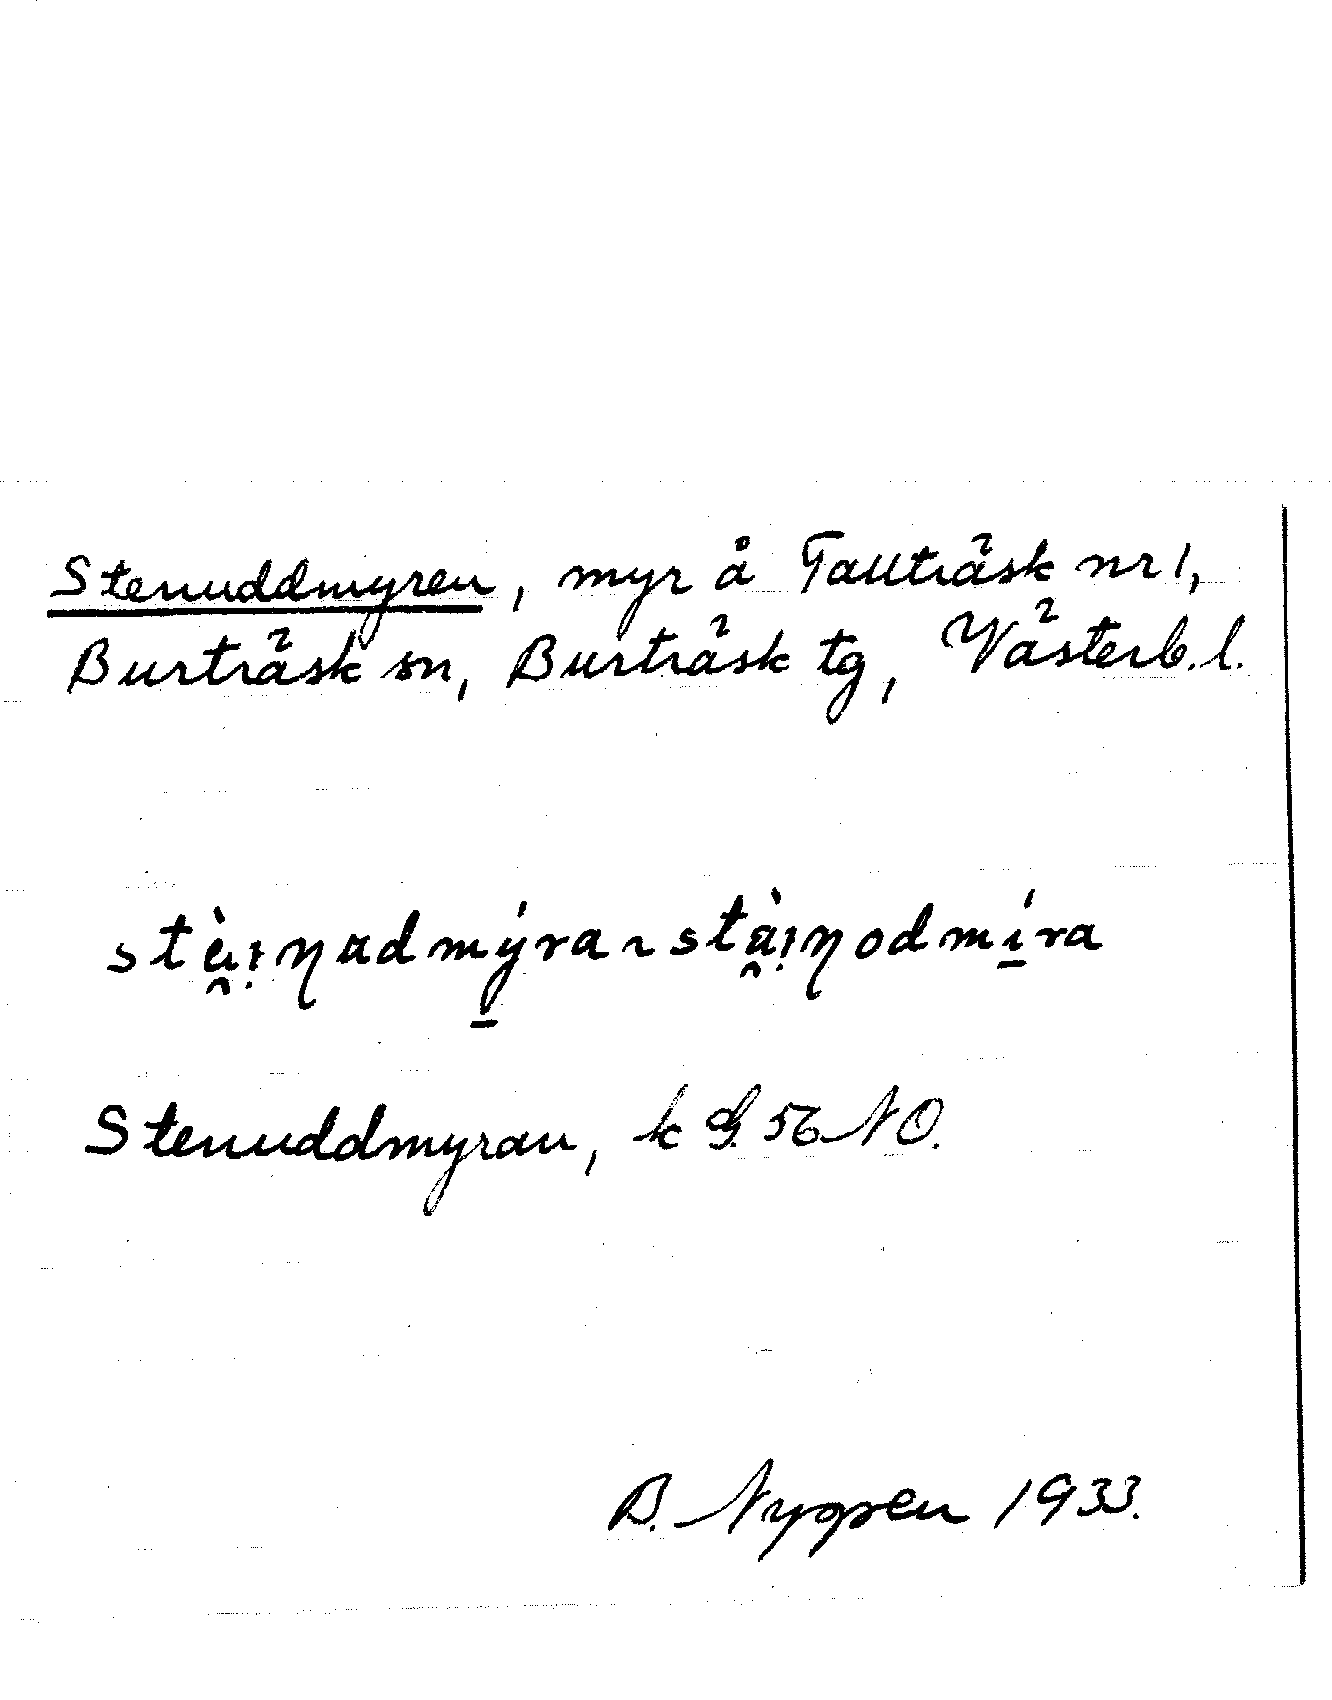 Stenuddmyren, myr å Tallträsk nr 1,
Burträsk sn, Burträsk tg, Västerb. l.
stàiηadmýra ~ stàiηodmíra
Stenuddmyran, k G. 56 NO.
B. Nygren 1933.